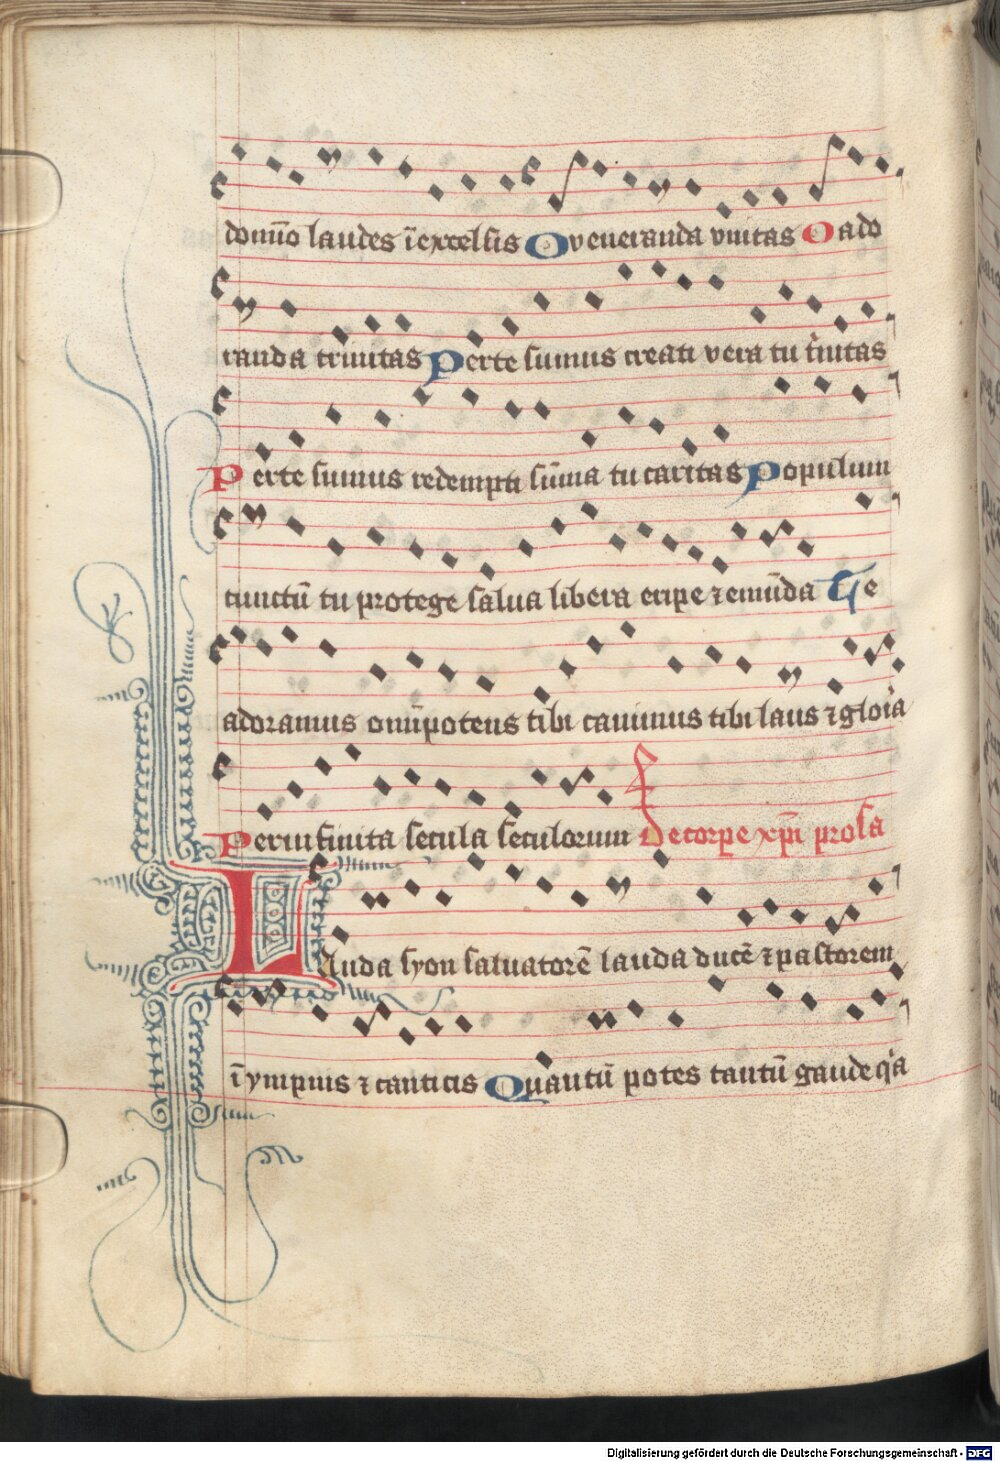 domīo laudes ī excelsis O veneranda vnitas O ado
randa trinitas Per te sumus creati vera tu t̉nitas
Per te sumus redempti sūma tu caritas Populum
cunctū tu protege salua libera eripe ⁊ emūda Te
adoramus omīpotens tibi canimus tibi laus ⁊ glor̉a
Per infinita secula seculorum De corpe xp̄i prosa
Lauda syon saluatorē lauda ducē ⁊ pastorem
ī ympnis ⁊ canticis Quantū potes tantū gaude q̉a
Digitalisierung gefördert durch die Deutsche Forschungsgemeinschaft - DFG